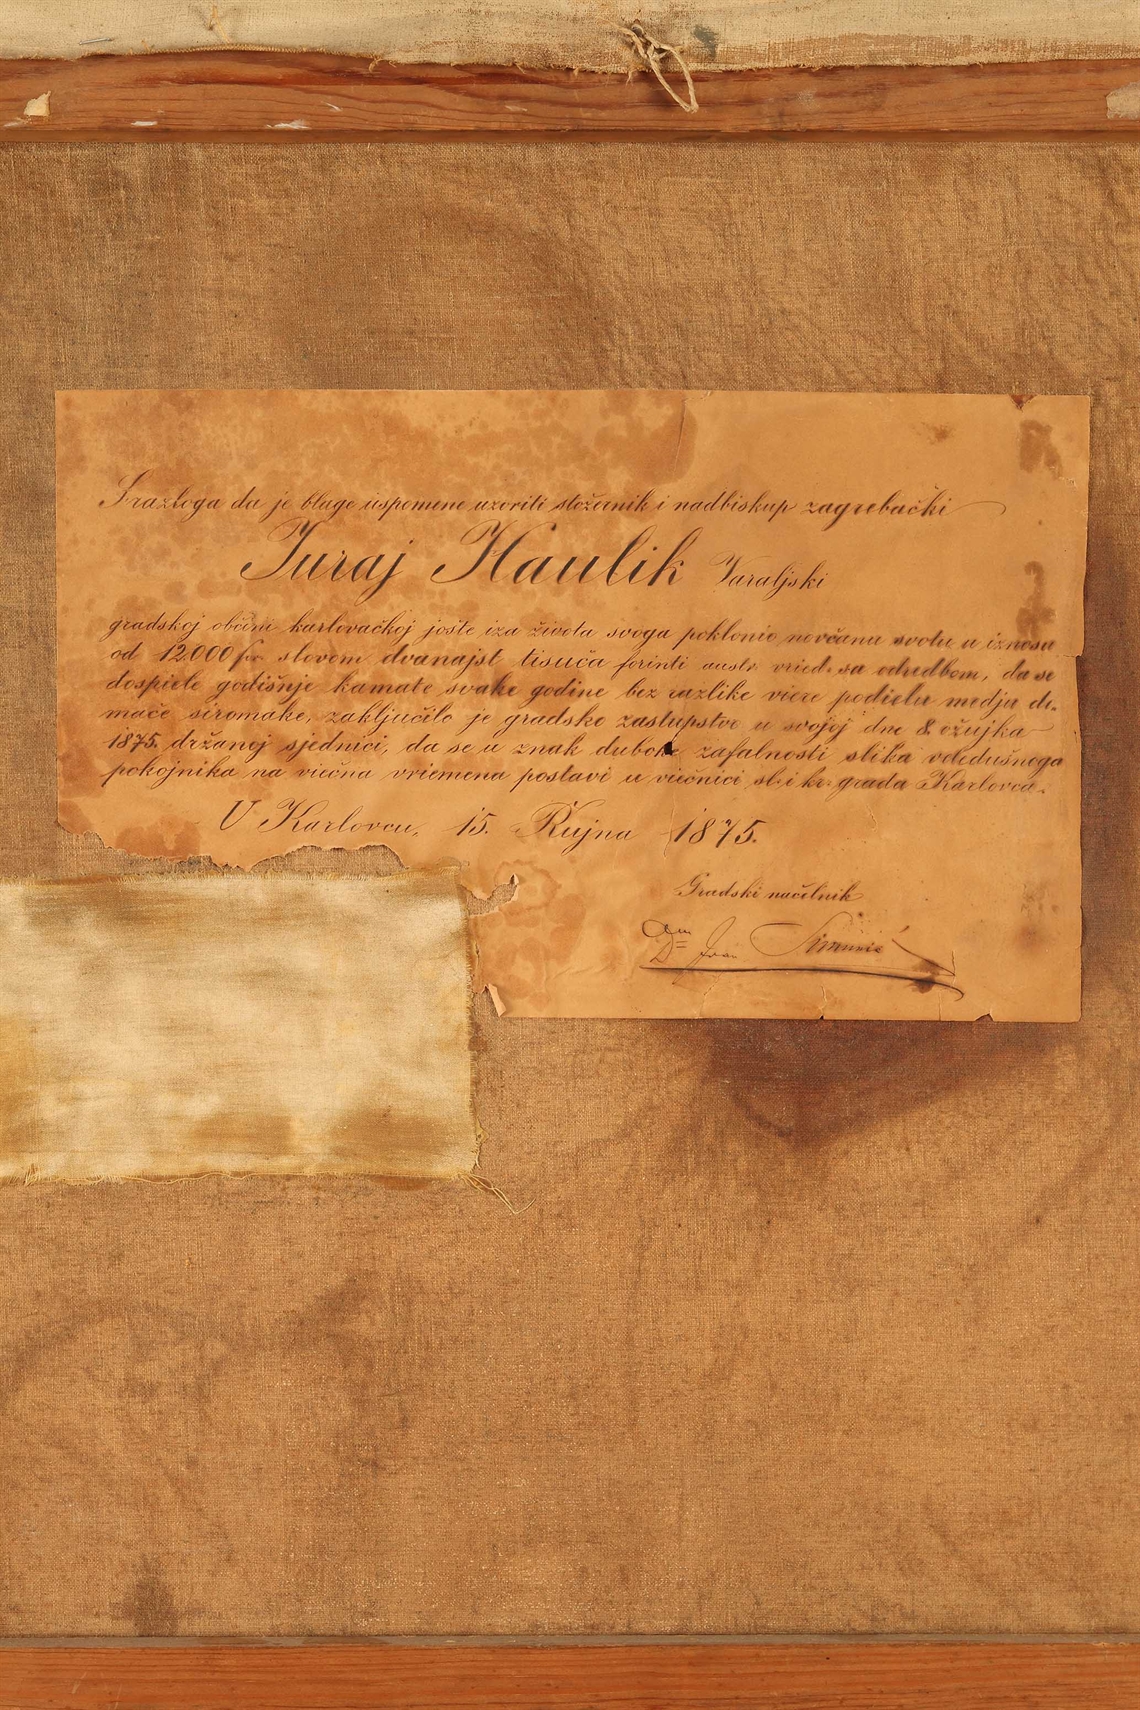 S razloga da je blage uspomene uzoriti stožernik i nadbiskup zagrebački
Juraj Haulik Varaljski
gradskoj občini karlovačkoj jošte iza života svoga poklonio novčanu svotu u iznosu
od 12.000 for. slovom dvanajst tisuća forinti austr. vried. sa odredbom, da se
dospiele godišnje kamate svake godine bez razlike viere podielu medju do-
maće siromake, zaključilo je gradsko zastupstvo u svojoj dne 8. ožujka
1875. držanoj sjednici, da se u znak duboke zafalnosti slika veledušnoga
pokojnika na viečna vriemena postavi u viećnici sl. i kr. grada Karlovca.
U Karlovcu, 15. Rujna 1875.
Gradski načelnik
Dr. Ivan